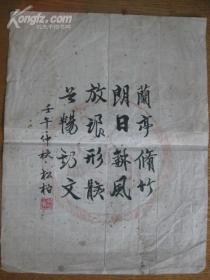 蘭亭脩竹
朗日蘇風
放浪形骸
共暢詩文
壬午仲秋 松柏